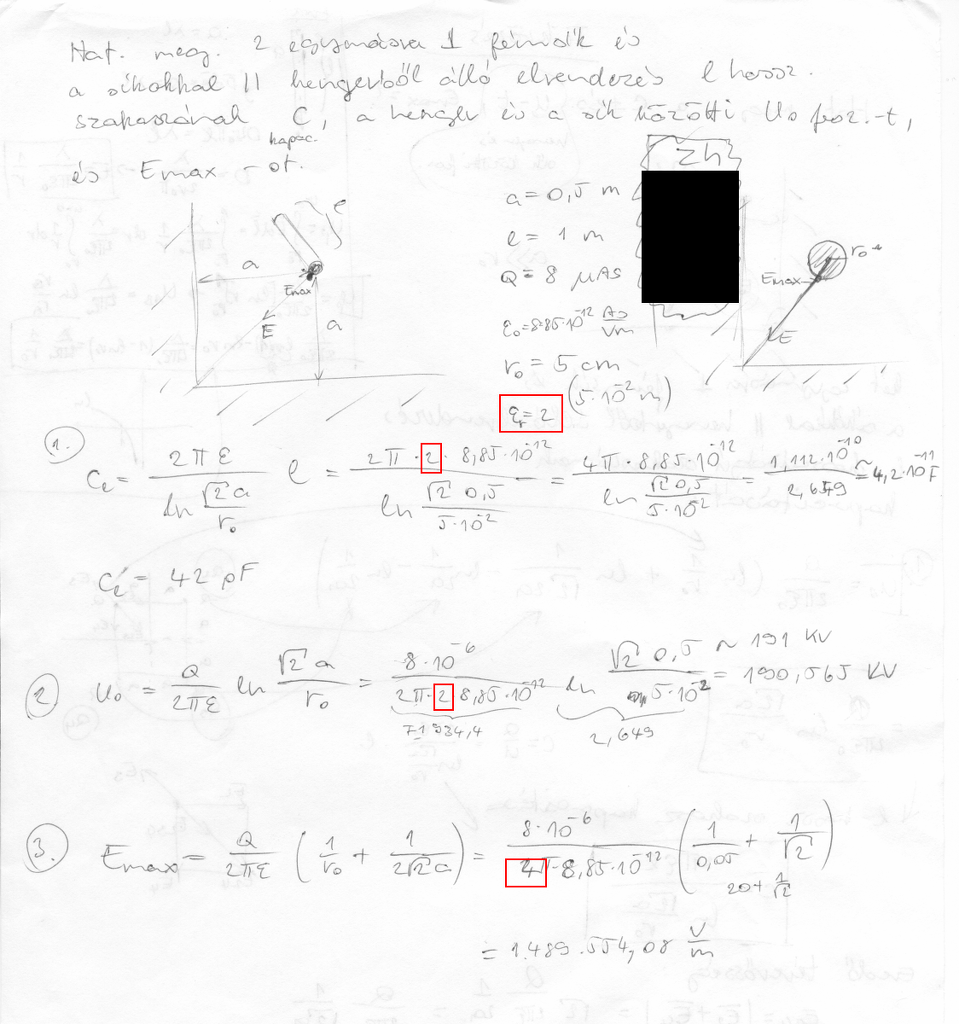 Hat. meg. 2 egymásra ⊥ fémsík és
a síkokkal || hengerből álló elrendezés l hossz.
szakaszának C, a henger és a sík közötti U₀ fesz.-t,
kapac.
és Emax -ot.
2h
a = 0,5 m
l = 1 m
Q = 8 μAs
ε₀ = 8.85·10⁻¹² As/Vm
r₀ = 5 cm
(5·10⁻² m)
εr = 2
l
a
Emax
E
a
r₀
Emax
E
1. Cₑ = 2πε / ln(√2 a / r₀) l = 2π·2·8,85·10⁻¹² / ln(√2 0,5 / 5·10⁻²) = 4π·8,85·10⁻¹² / ln(√2 0,5 / 5·10⁻²) = 1,112·10⁻¹⁰ / 2,649 ≈ 4,2·10⁻¹¹ F
Cₑ = 42 pF
2 U₀ = Q / 2πε ln √2 a / r₀ = 8·10⁻⁶ / 2π·2 8,85·10⁻¹² ln √2 0,5 / 5·10⁻² ~ 191 KV = 190,565 KV
71934,4 2,649
3. Emax = Q / 2πε (1/r₀ + 1/2√2a) = 8·10⁻⁶ / 4π·8,85·10⁻¹² (1/0,05 + 1/√2)
20 + 1/√2
= 1.489.554,08 V/m